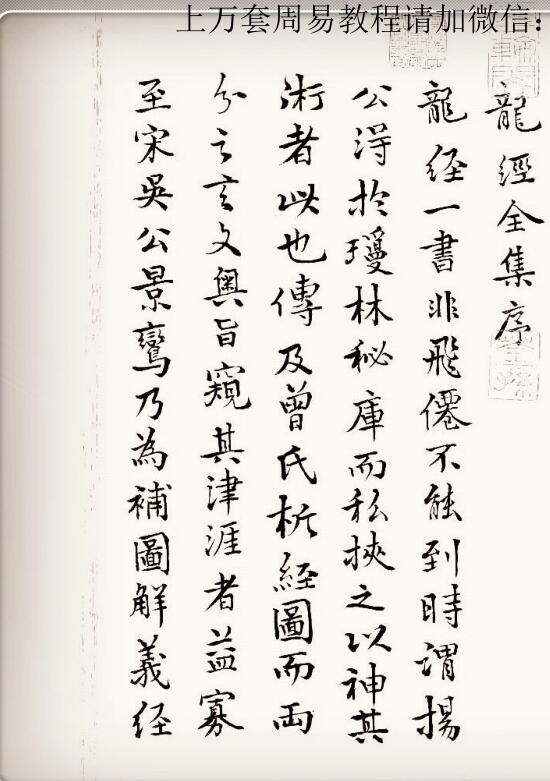 上万套周易教程请加微信：
龍經全集序
龍経一書非飛僊不能到時謂楊
公淂於瓊林秘庫而私挾之以神其
術者此也傳及曾氏析経圖而両
分之言文奥旨窺其津涯者益寡
至宋吳公景鸞乃為補圖解義経